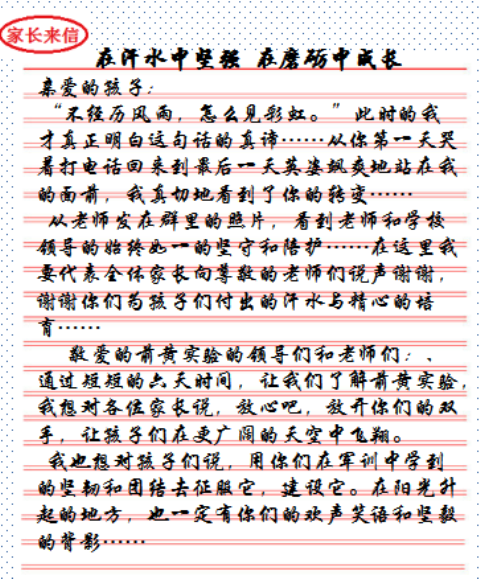 家长来信
在汗水中坚强 在磨砺中成长
亲爱的孩子：
“不经历风雨，怎么见彩虹。”此时的我
才真正明白这句话的真谛……从你第一天哭
着打电话回来到最后一天英姿飒爽地站在我
的面前，我真切地看到了你的转变……
从老师发在群里的照片，看到老师和学校
领导的始终如一的坚守和陪护……在这里我
要代表全体家长向尊敬的老师们说声谢谢，
谢谢你们为孩子们付出的汗水与精心的培
育……
敬爱的前黄实验的领导们和老师们：、
通过短短的六天时间，让我们了解前黄实验，
我想对各位家长说，放心吧，放开你们的双
手，让孩子们在更广阔的天空中飞翔。
我也想对孩子们说，用你们在军训中学到
的坚韧和团结去征服它，建设它。在阳光升
起的地方，也一定有你们的欢声笑语和坚毅
的背影……